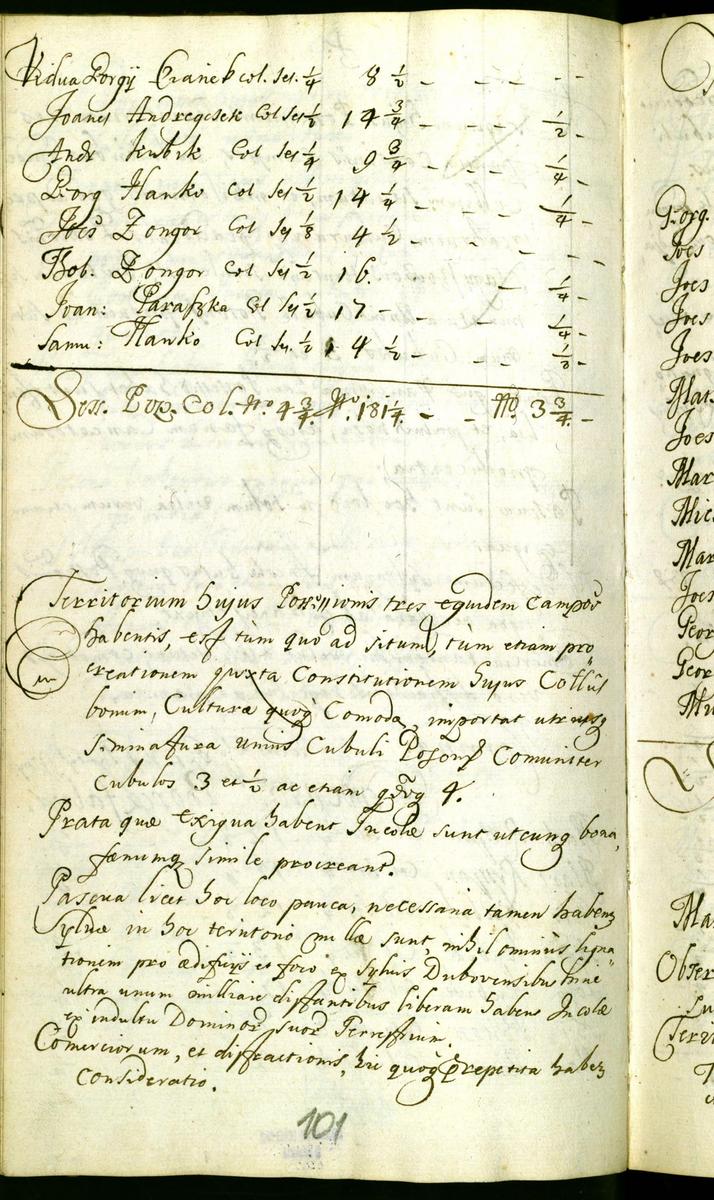 Vidua Georgÿ Cianek col. ses. 1/4 8 1/2 - - - - -
Joanes Andregcsek Col ses 1/2 14 3/4 - - - 1/2 -
Andr Kubik Col ses 1/4 9 3/4 - - - 1/4 -
Georg Hanko Col ses 1/2 14 1/4 - - - 1/4 -
Joes Zongor Col ses 1/8 4 1/2 - - - - -
Bob. Zongor Col ses 1/2 16. - 1/4 -
Joan: Paraszka Col ses 1/2 17 - - - 1/4 -
Samu: Hanko Col ses. 1/2 14 1/2 - - - 1/8 -
Sess. Pop. Col. No 4 3/4. No. 181 1/4. - - No 3 3/4. -
Territorium hujus Possessionis tres equidem Campos
habentis, est tùm quo ad situm, tùm etiam pro
creationem juxta Constitutionem hujus Cottûs
bonum, Culturæ quoq Comodæ, importat utriusq
siminatura unius Cubuli Poson Comuniter
Cubulos 3 et 1/2 ac etiam 4.
Prata quæ exigua habent Incolæ sunt utcunq bona,
fænumq simile procreant.
Pascua licet hoc loco pauca, necessaria tamen habent
Sylvæ in hoc territorio nullæ sunt, nihilominùs ligna
tionem pro ædificÿs et foco ex Sylvis Dubovensibus hinc
ultra unum milliare distantibus liberam habent Incolæ
ex indultu Dominor suor Terrestrium.
Comerciorum, et distractionis, hic quoq præpetita habet
Consideratio.
101
Georg.
Joes
Joes
Joes
Joes
Mat.
Joes
Mar
Mic
Mar
Joes
Geor
Geor
Ma
Obser
Terri